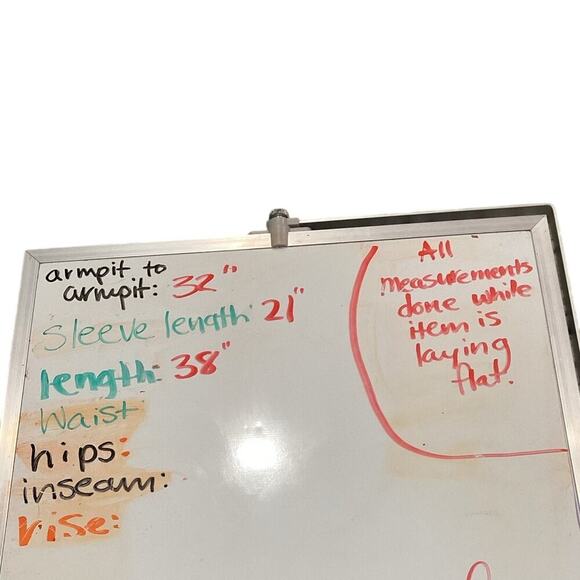 armpit to
armpit: 32"
Sleeve length: 21"
length: 38"
Waist
hips:
inseam:
rise:
All
measurements
done while
item is
laying
flat.